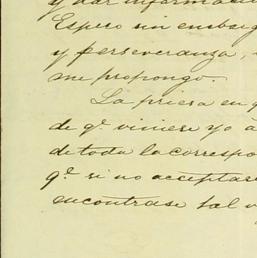 y dar informaci
Espero sin embarg
y perseveranza,
me propongo.
La priesa en q
de q.e viniese yo á
de toda la correspo
q.e si no aceptase
encontrase tal v